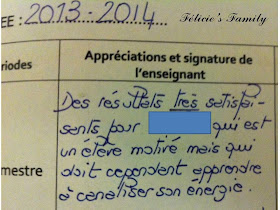 EE : 2013 - 2014
Félicie's Family
riodes
Appréciations et signature de
l'enseignant
Des résultats très satisfai-
sants pour qui est
un élève motivé mais qui
doit cependant apprendre
à canaliser son énergie.
mestre